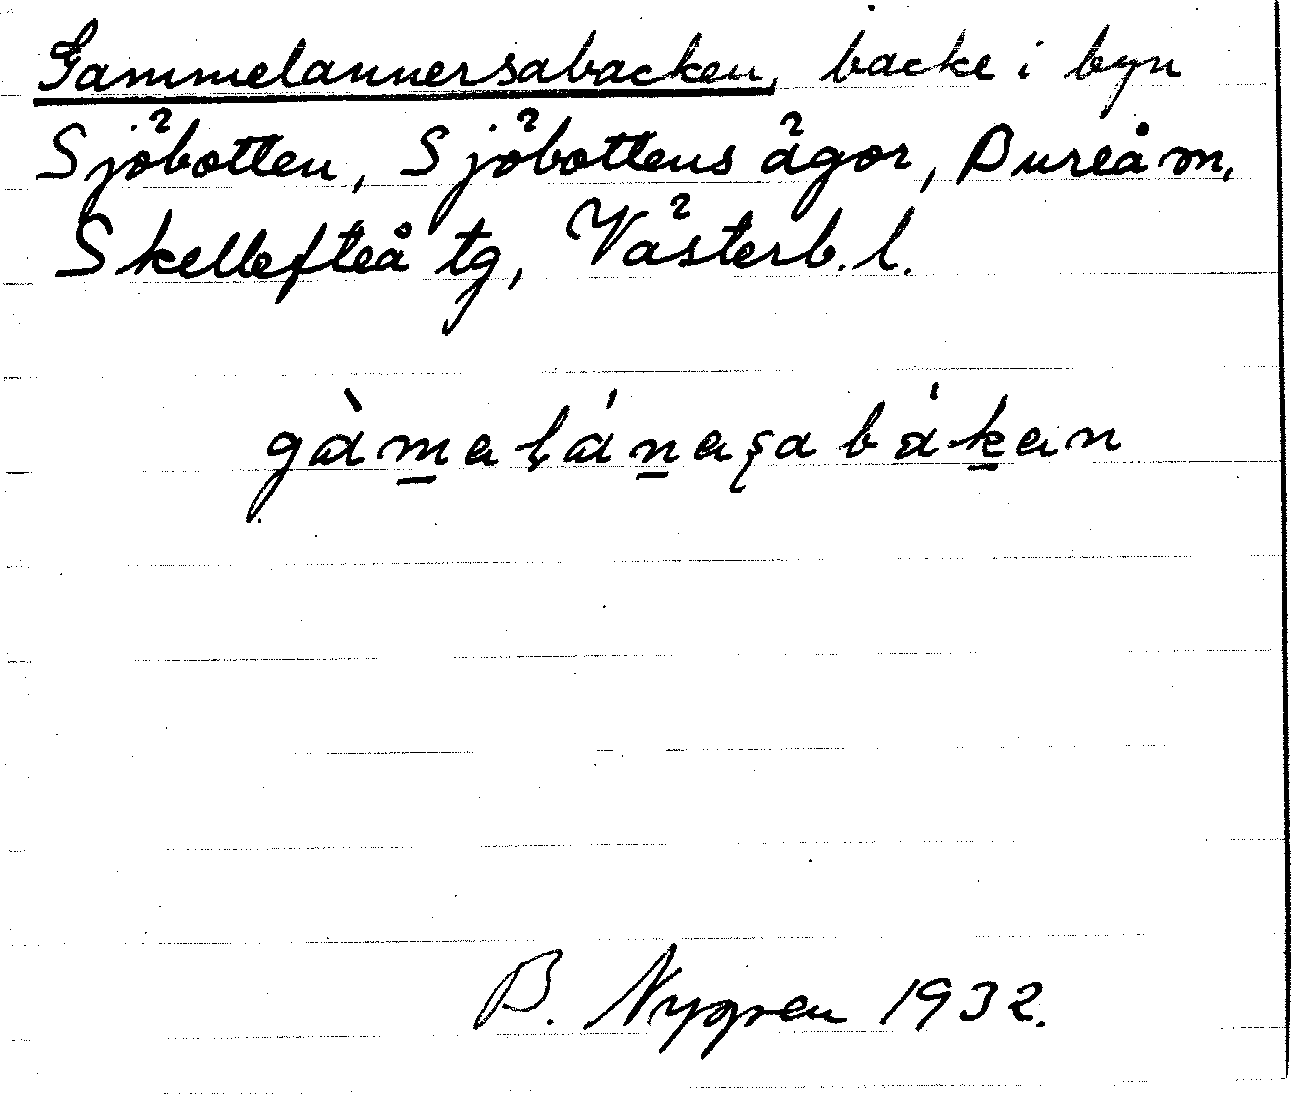 Gammelannersabacken, backe i byn
Sjöbotten, Sjöbottens ägor, Bureå m,
Skellefteå tg, Västerb. l.
B. Nygren 1932.